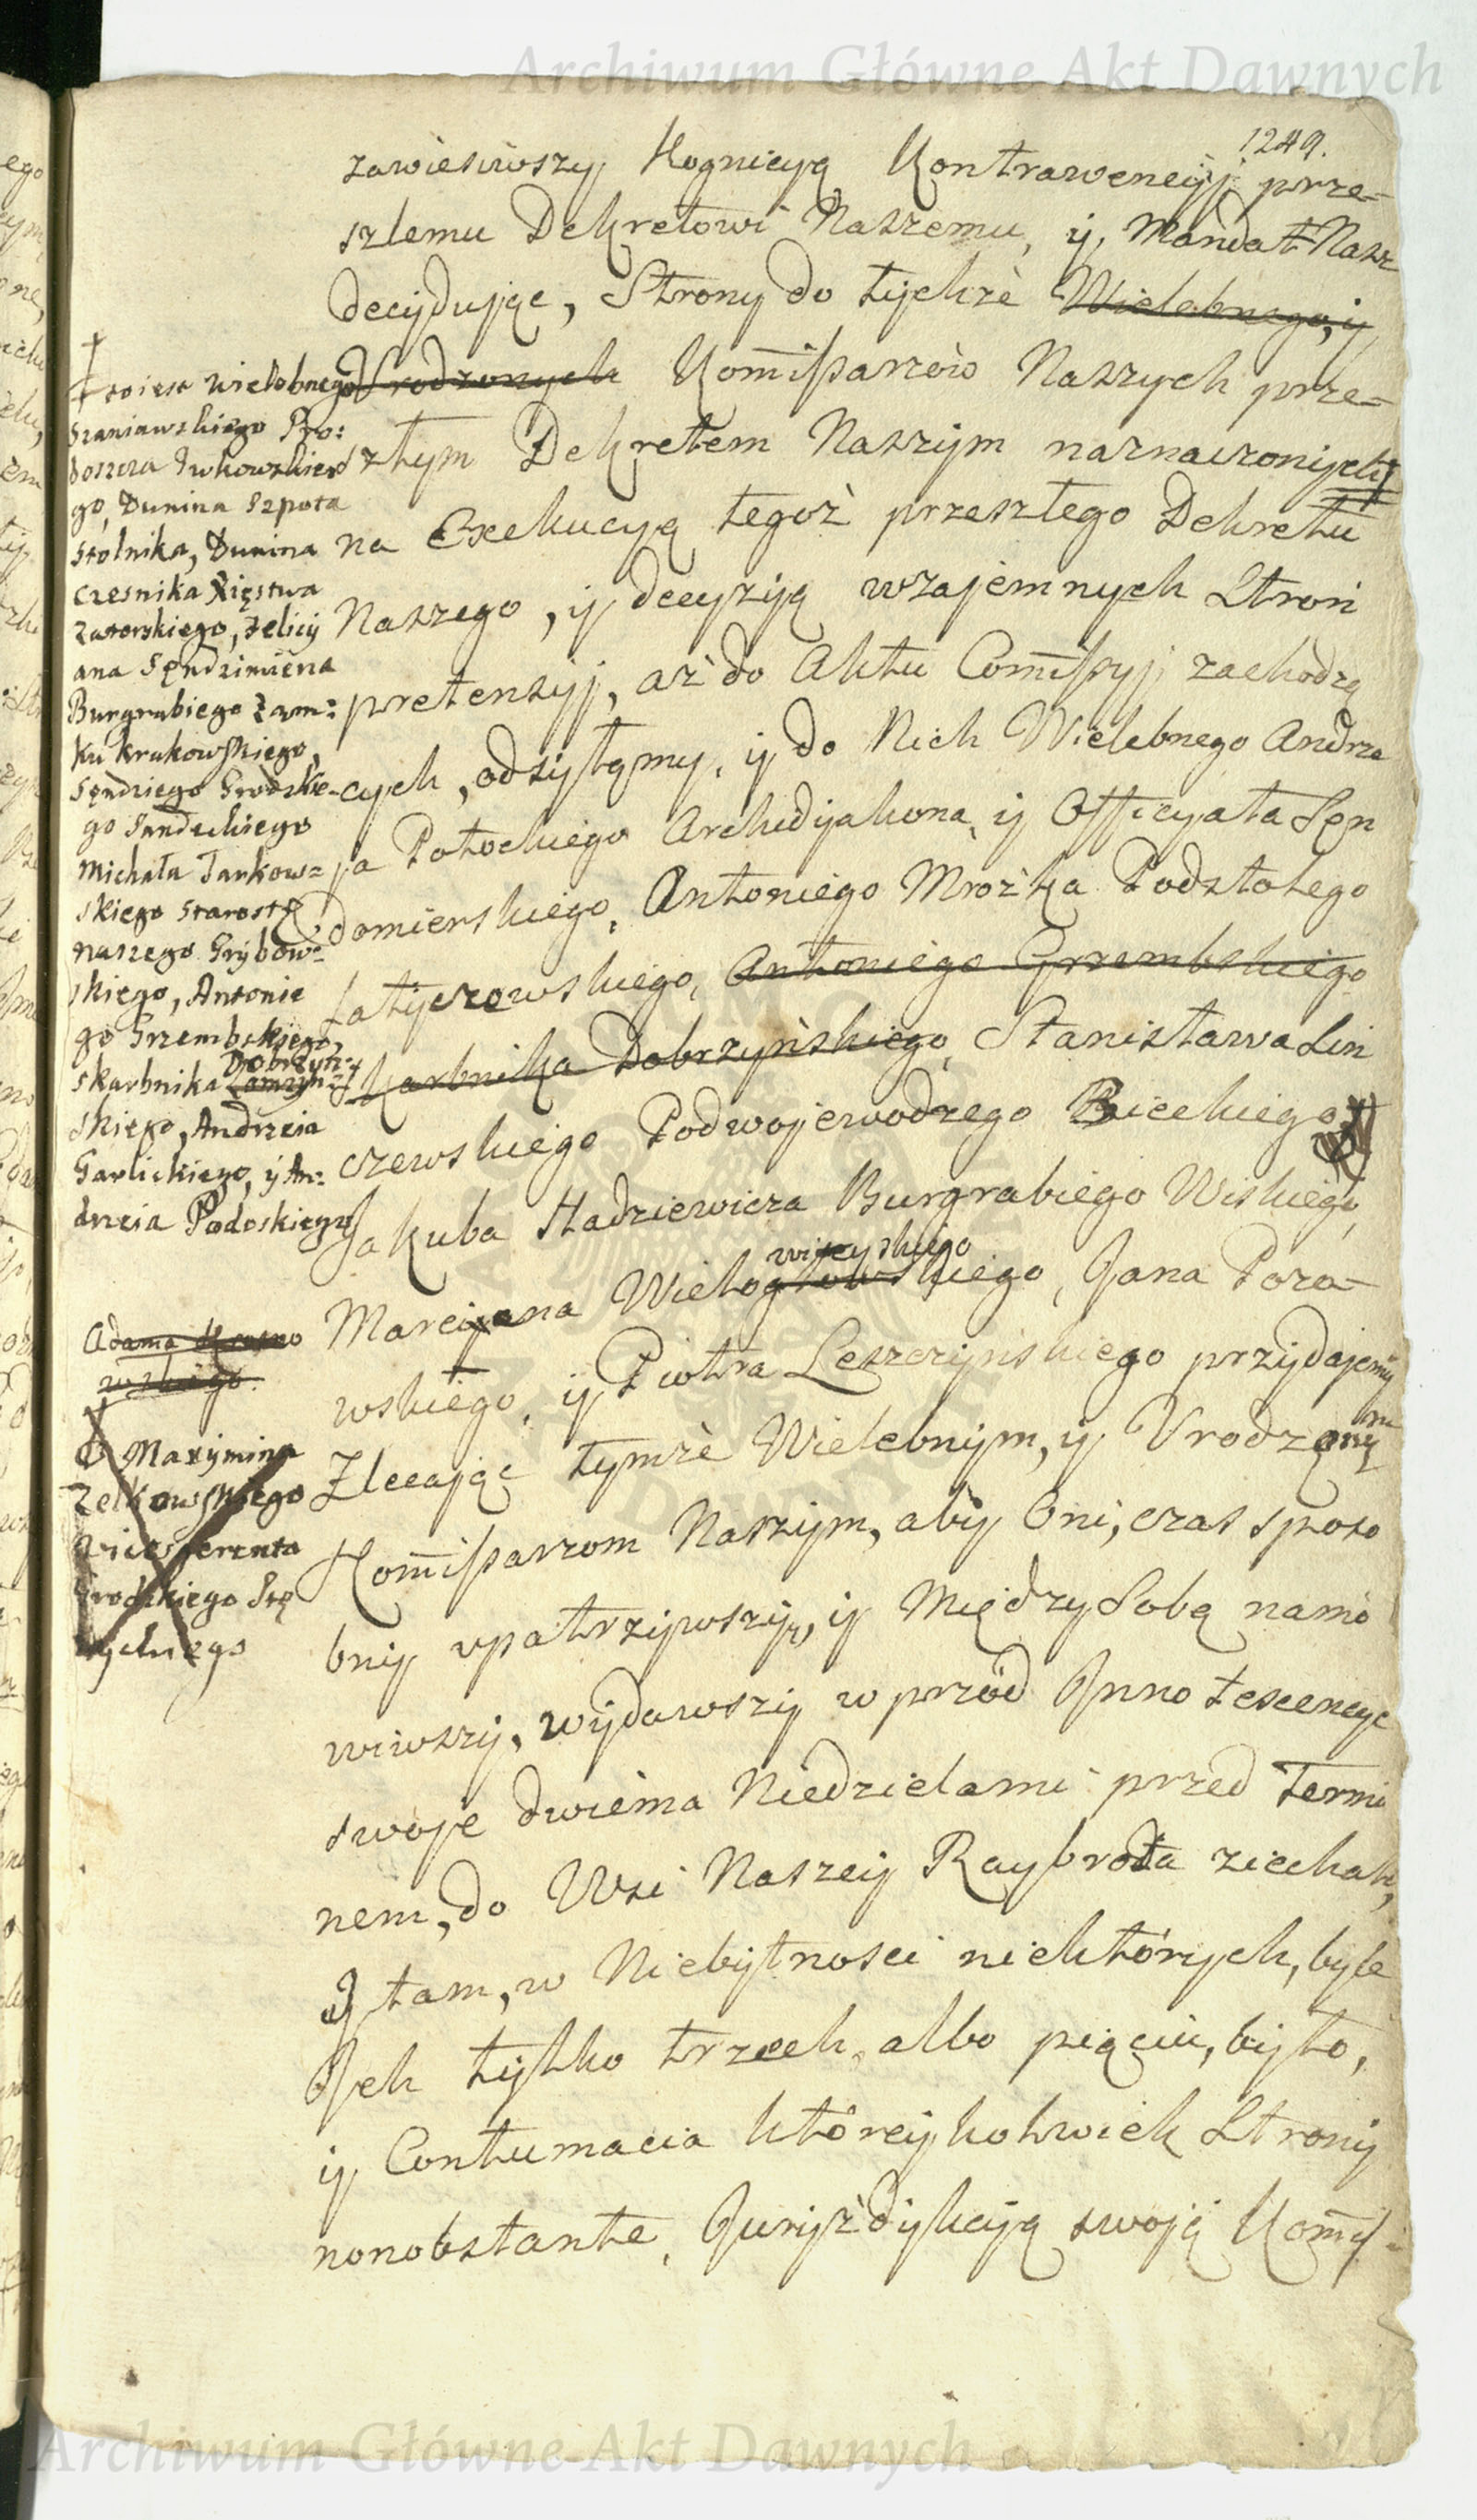 Archiwum Główne Akt Dawnych
1249.
zawiesiwszy Kognicyą Kontrawencyj prze=
szłemu Dekretowi Naszemu, y Mandat Nasz
decydując, Strony do tychże Wielebnego, y
Urodzonych Kom̄issarzow Naszych prze=
szłym Dekretem Naszym naznaczonych
na Exekucyą tegoż przeszłego Dekretu
Naszego, y decyzyą wzajemnych Stron
pretensyj, aż do Aktu Com̄issyj zachodzą
cych, odsyłamy, y do Nich Wielebnego Andrze
ja Potockiego Archidyakona, y Officyała Sen
domierskiego, Antoniego Mrozka Podstolego
Latyczowskiego, Antoniego Grzembskiego
Skarbnika Dobrzyńskiego, Stanisława Lin
czewskiego Podwojewodzego Bieckiego,
Jakuba Hadziewicza Burgrabiego Wiskiego,
wieyskiego
Marcyana Wielogłowskiego, Jana Pora=
wskiego, y Piotra Leszczyńskiego przydajemy
Zlecając tymże Wielebnym, y Urodzonym
Kom̄issarzom Naszym, aby Oni, czas sposo
bny upatrzywszy, y Między Sobą namo
wiwszy, wydawszy wprzód Jnnotescencye
swoje dwiema Niedzielami przed Termi
nem, do Wsi Naszey Raybrota ziechali,
Y tam, w Niebytnosci niektórych, byle
Jch tylko trzech, albo pięciu, było,
y Contumacia któreykolwiek Strony
nonobstante, Juryzdykcyą swoją Kom̄is
toiest Wielebnego
Szaniawskiego Pro:
boszcza Iwkowskie
go, Dunina Szpota
Stolnika, Dunina
Czesnika Xięstwa
Zatorskiego, Felicy
ana Sędzimira
Burgrabiego Zam:
ku Krakowskiego,
Sędziego Grodzkie=
go Sandeckiego
Michała Tarkow=
skiego Starostę
naszego Grybow=
skiego, Antonie
go Grzembskiego,
Dobrzyń=
Skarbnika
skiego, Andrzeia
Garlickiego, y An:
drzeia Podoskiego
Adama
wskiego
Maxymina
Zelkowskiego
Vicesgerenta
Grodzkiego Stę
życkiego
Archiwum Główne Akt Dawnych